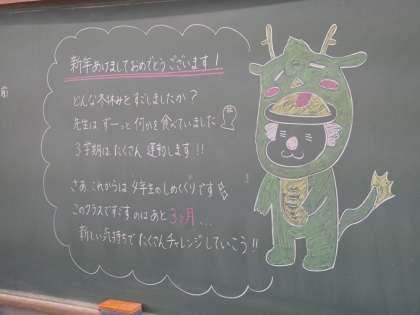 新年あけましておめでとうございます!
どんな冬休みをすごしましたか?
先生はずーっと何かを食べていました
3学期はたくさん運動します!!
さあ これからは4年生のしめくくりです
このクラスですごすのはあと3ヶ月...
新しい気持ちでたくさんチャレンジしていこう!!